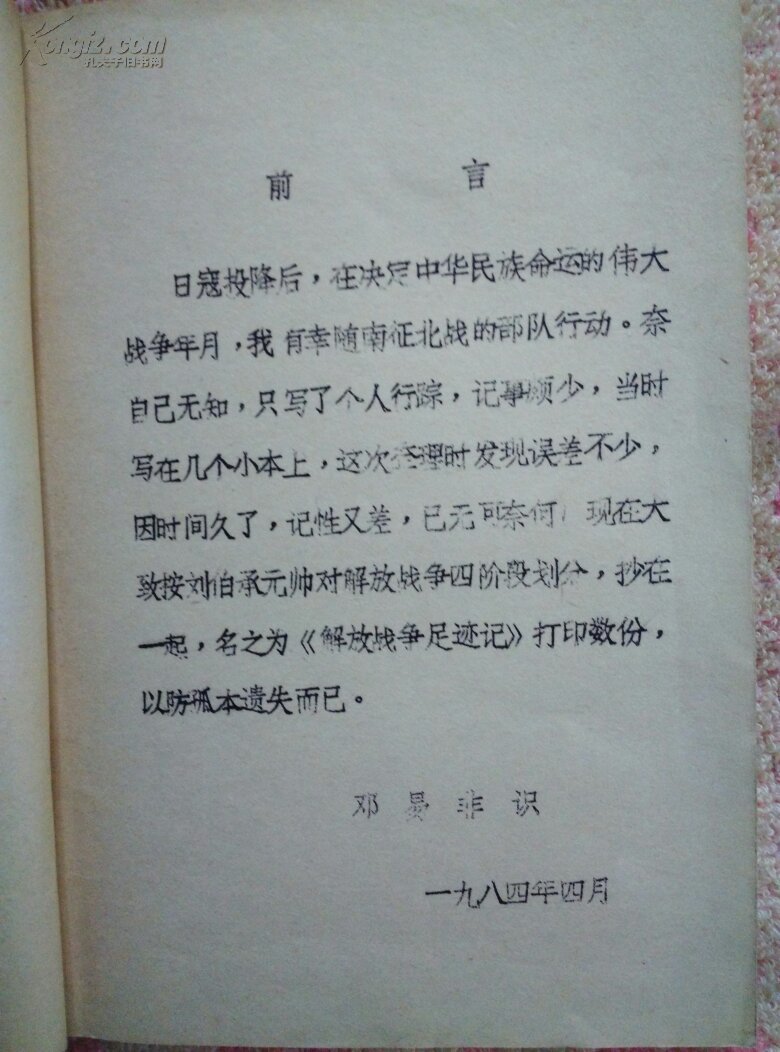 Kongfz.com
孔夫子旧书网
前言
日寇投降后，在决定中华民族命运的伟大
战争年月，我有幸随南征北战的部队行动。奈
自己无知，只写了个人行踪，记事颇少，当时
写在几个小本上，这次整理时发现误差不少，
因时间久了，记性又差，已无可奈何！现在大
致按刘伯承元帅对解放战争四阶段划分，抄在
一起，名之为《解放战争足迹记》打印数份，
以防孤本遗失而已。
邓晏非识
一九八四年四月